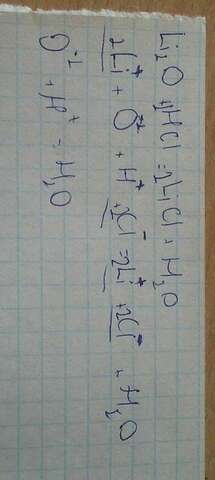 Li₂O + 2HCl = 2LiCl + H₂O
2Li⁺ + O⁻² + H⁺ + 2Cl⁻ = 2Li⁺ + 2Cl⁻ + H₂O
O⁻² + H⁺ = H₂O